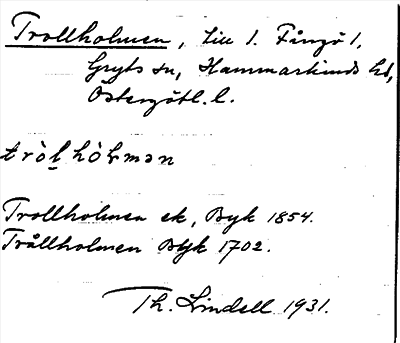 Trollholmen, till 1. Fångö 1,
Gryts sn, Hammarkinds hd,
Östergötl. l.
tròḷhòḷmən
Trollholmen ek, Byk 1854.
Trållholmen Byk 1702.
Th. Lindell 1931.